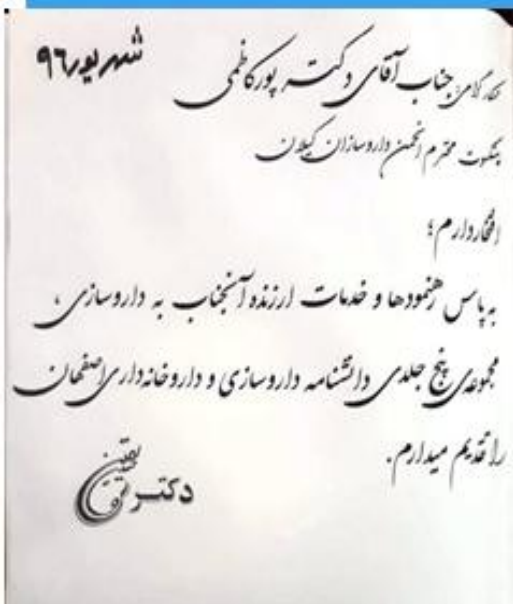 شهریور ۹۶
همکار گرامی جناب آقای دکتر پورکاظمی
پیشکسوت محترم انجمن داروسازان گیلان
افتخار دارم؛
به پاس رهنمودها و خدمات ارزنده آنجناب به داروسازی،
مجموعه‌ی پنج جلدی دانشنامه داروسازی و داروخانه‌داری اصفهان
را تقدیم میدارم.
دکتر